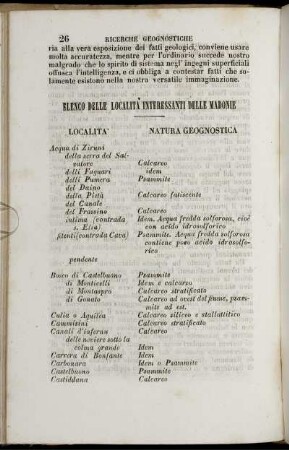 26 RICERCHE GEOGNOSTICHE
ria alla vera esposizione dei fatti geologici, conviene usare
molta accuratezza, mentre per l'ordinario succede nostro
malgrado che lo spirito di sistema negl' ingegni superficiali
offusca l'intelligenza, e ci obbliga a contestar fatti che so-
lamente esistono nella nostra versatile immaginazione.
ELENCO DELLE LOCALITÀ INTERESSANTI DELLE MADONIE
LOCALITA' NATURA GEOGNOSTICA
Acqua di
della serra del Sal-
vatore Calcareo
delli Fugari idem
delli Psammite
del Daino
della Pietà Calcareo fatiscente
del Canale
del Frassino Calcareo
(contrada Idem. Acqua fredda solforosa, cioè
con acido idrosolforico
(contrada Cava) Psammite. Acqua fredda solforosa
contiene poco acido idrosolfo-
rico
pendente
Bosco di Castelbuono Psammite
di Monticelli Idem e calcareo
di Montaspro Calcareo stratificato
di Gonato Calcareo ad ovest del fiume, psam-
mite ad est.
Calia o Aquilea Calcareo siliceo e stallattitico
Cammisini Calcareo stratificato
Canali d'inferno Calcareo
delle neviere sotto la
colma grande Idem
Carrera di Bonfante Idem
Carbonara Idem o Psammite
Castelbuono Psammite
Castiddana Calcareo